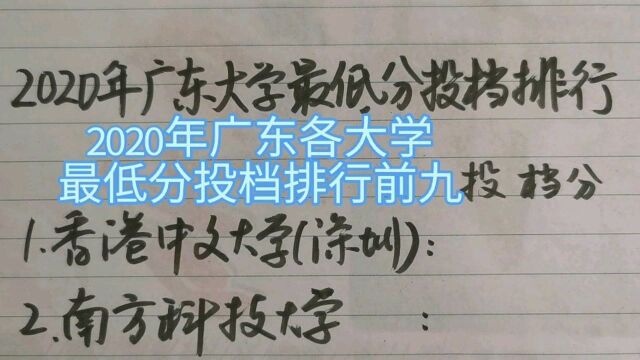 2020年广东大学最低分投档排行
2020年广东各大学
最低分投档排行前九
投档分
1.香港中文大学(深圳):
2.南方科技大学 :